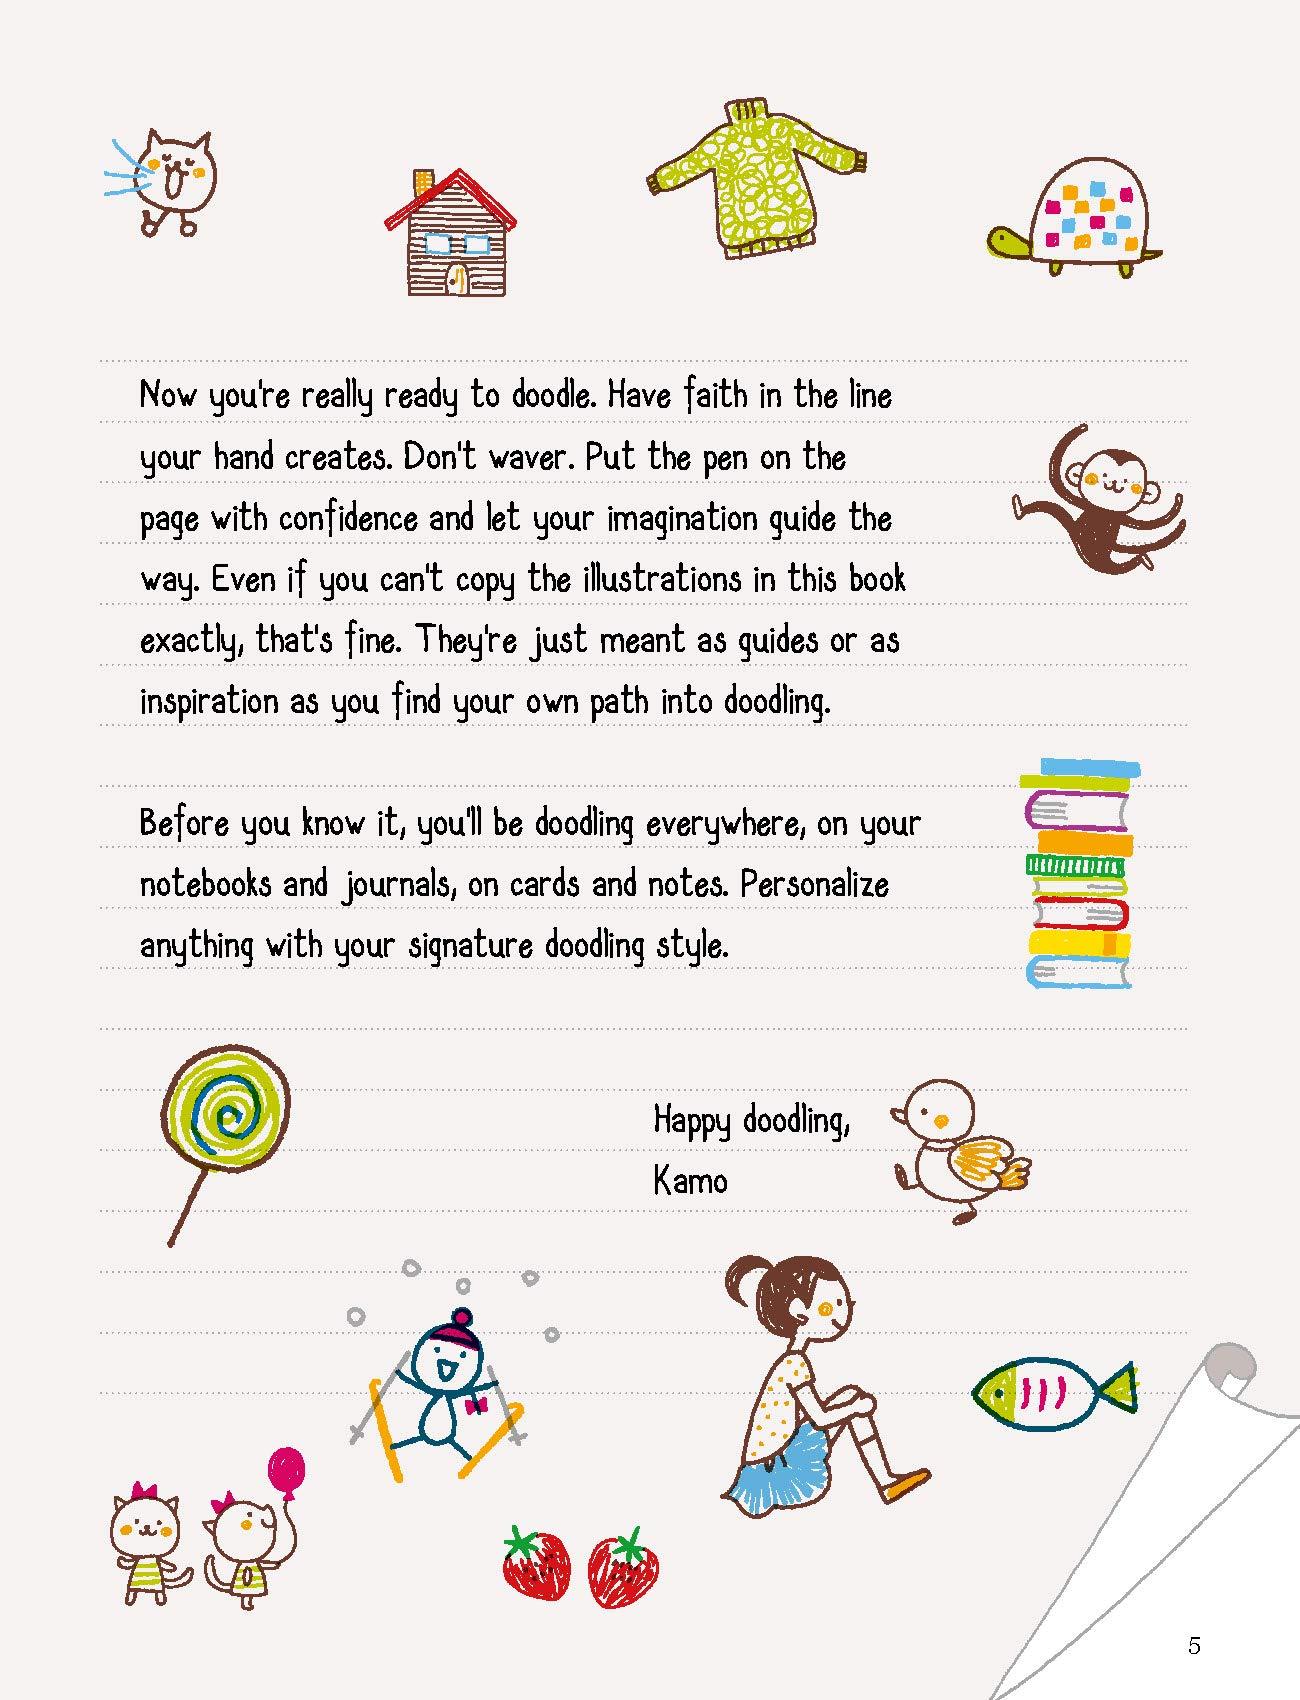 Now you're really ready to doodle. Have faith in the line
your hand creates. Don't waver. Put the pen on the
page with confidence and let your imagination guide the
way. Even if you can't copy the illustrations in this book
exactly, that's fine. They're just meant as guides or as
inspiration as you find your own path into doodling.
Before you know it, you'll be doodling everywhere, on your
notebooks and journals, on cards and notes. Personalize
anything with your signature doodling style.
Happy doodling,
Kamo
5